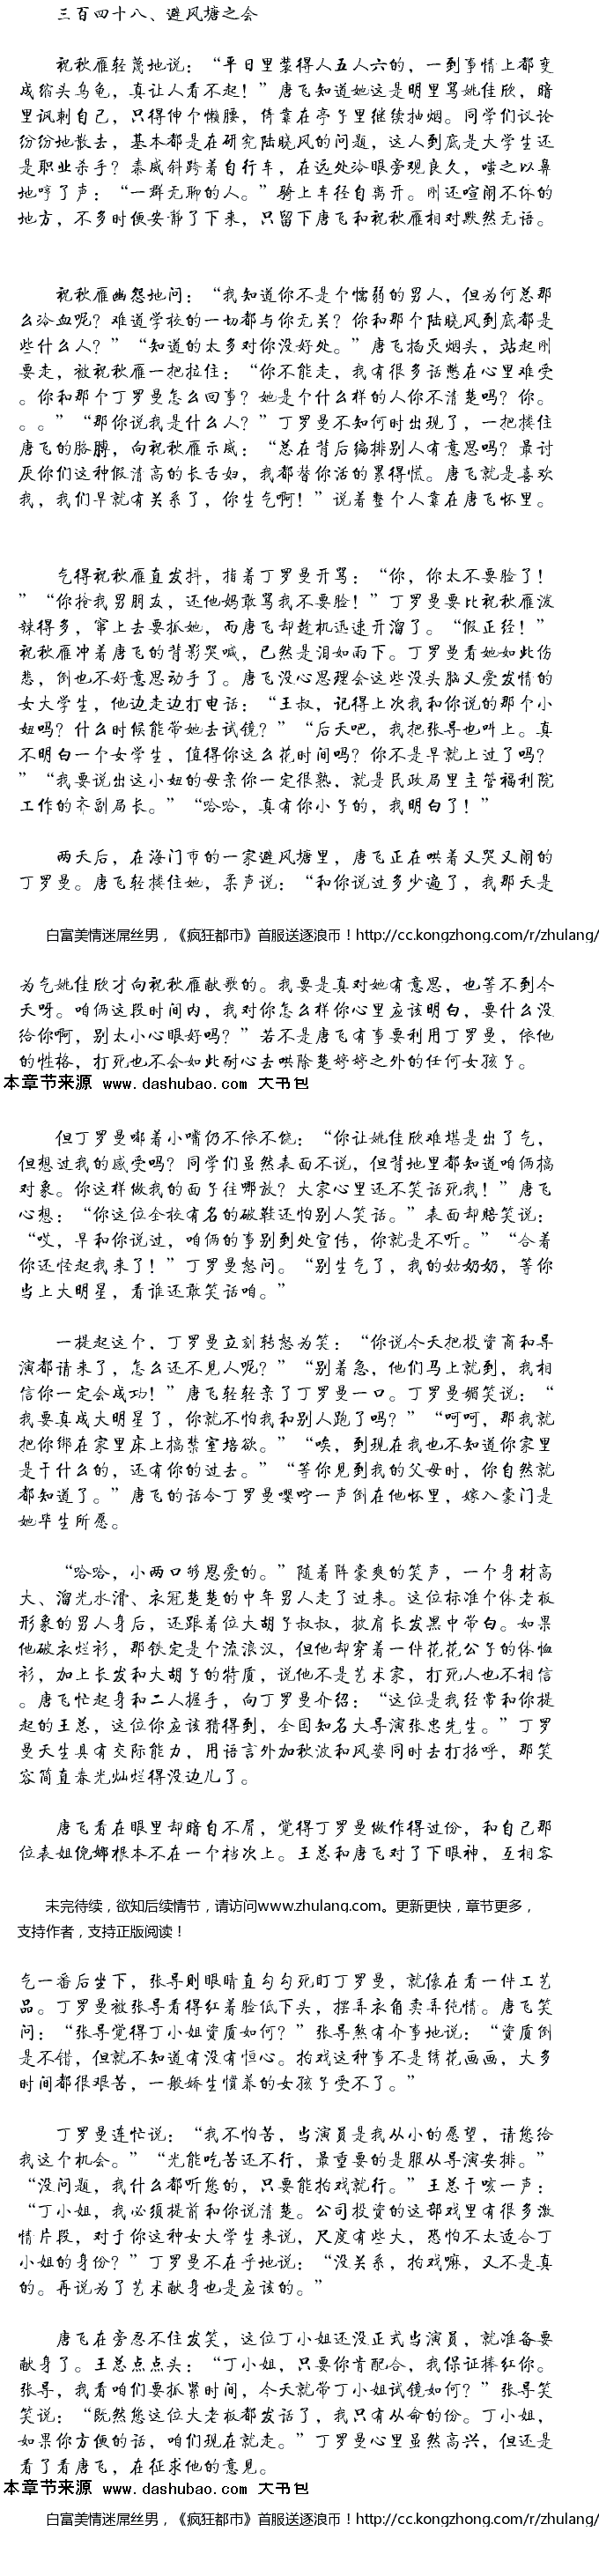 三百四十八、避风塘之会
祝秋雁轻蔑地说：“平日里装得人五人六的，一到事情上都变
成缩头乌龟，真让人看不起！”唐飞知道她这是明里骂姚佳欣，暗
里讽刺自己，只得伸个懒腰，倚靠在亭子里继续抽烟。同学们议论
纷纷地散去，基本都是在研究陆晓风的问题，这人到底是大学生还
是职业杀手？秦威斜跨着自行车，在远处冷眼旁观良久，嗤之以鼻
地哼了声：“一群无聊的人。”骑上车径自离开。刚还喧闹不休的
地方，不多时便安静了下来，只留下唐飞和祝秋雁相对默然无语。
祝秋雁幽怨地问：“我知道你不是个懦弱的男人，但为何总那
么冷血呢？难道学校的一切都与你无关？你和那个陆晓风到底都是
些什么人？”“知道的太多对你没好处。”唐飞掐灭烟头，站起刚
要走，被祝秋雁一把拉住：“你不能走，我有很多话憋在心里难受
。你和那个丁罗曼怎么回事？她是个什么样的人你不清楚吗？你。
。。”“那你说我是什么人？”丁罗曼不知何时出现了，一把搂住
唐飞的胳膊，向祝秋雁示威：“总在背后编排别人有意思吗？最讨
厌你们这种假清高的长舌妇，我都替你活的累得慌。唐飞就是喜欢
我，我们早就有关系了，你生气啊！”说着整个人靠在唐飞怀里。
气得祝秋雁直发抖，指着丁罗曼开骂：“你，你太不要脸了！
”“你抢我男朋友，还他妈敢骂我不要脸！”丁罗曼要比祝秋雁泼
辣得多，窜上去要抓她，而唐飞却趁机迅速开溜了。“假正经！”
祝秋雁冲着唐飞的背影哭喊，已然是泪如雨下。丁罗曼看她如此伤
悲，倒也不好意思动手了。唐飞没心思理会这些没头脑又爱发情的
女大学生，他边走边打电话：“王叔，记得上次我和你说的那个小
妞吗？什么时候能带她去试镜？”“后天吧，我把张导也叫上。真
不明白一个女学生，值得你这么花时间吗？你不是早就上过了吗？
”“我要说出这小妞的母亲你一定很熟，就是民政局里主管福利院
工作的齐副局长。”“哈哈，真有你小子的，我明白了！”
两天后，在海门市的一家避风塘里，唐飞正在哄着又哭又闹的
丁罗曼。唐飞轻搂住她，柔声说：“和你说过多少遍了，我那天是
白富美情迷屌丝男，《疯狂都市》首服送逐浪币！http://cc.kongzhong.com/r/zhulang/
为气姚佳欣才向祝秋雁献歌的。我要是真对她有意思，也等不到今
天呀。咱俩这段时间内，我对你怎么样你心里应该明白，要什么没
给你啊，别太小心眼好吗？”若不是唐飞有事要利用丁罗曼，依他
的性格，打死也不会如此耐心去哄除楚婷婷之外的任何女孩子。
本章节来源 www.dashubao.com 大书包
但丁罗曼嘟着小嘴仍不依不饶：“你让姚佳欣难堪是出了气，
但想过我的感受吗？同学们虽然表面不说，但背地里都知道咱俩搞
对象。你这样做我的面子往哪放？大家心里还不笑话死我！”唐飞
心想：“你这位全校有名的破鞋还怕别人笑话。”表面却赔笑说：
“哎，早和你说过，咱俩的事别到处宣传，你就是不听。”“合着
你还怪起我来了！”丁罗曼怒问。“别生气了，我的姑奶奶，等你
当上大明星，看谁还敢笑话咱。”
一提起这个，丁罗曼立刻转怒为笑：“你说今天把投资商和导
演都请来了，怎么还不见人呢？”“别着急，他们马上就到，我相
信你一定会成功！”唐飞轻轻亲了丁罗曼一口。丁罗曼媚笑说：“
我要真成大明星了，你就不怕我和别人跑了吗？”“呵呵，那我就
把你绑在家里床上搞禁室培欲。”“唉，到现在我也不知道你家里
是干什么的，还有你的过去。”“等你见到我的父母时，你自然就
都知道了。”唐飞的话令丁罗曼嘤咛一声倒在他怀里，嫁入豪门是
她毕生所愿。
“哈哈，小两口够恩爱的。”随着阵豪爽的笑声，一个身材高
大、溜光水滑、衣冠楚楚的中年男人走了过来。这位标准个体老板
形象的男人身后，还跟着位大胡子叔叔，披肩长发黑中带白。如果
他破衣烂衫，那铁定是个流浪汉，但他却穿着一件花花公子的体恤
衫，加上长发和大胡子的特质，说他不是艺术家，打死人也不相信
。唐飞忙起身和二人握手，向丁罗曼介绍：“这位是我经常和你提
起的王总，这位你应该猜得到，全国知名大导演张忠先生。”丁罗
曼天生具有交际能力，用语言外加秋波和风姿同时去打招呼，那笑
容简直春光灿烂得没边儿了。
唐飞看在眼里却暗自不屑，觉得丁罗曼做作得过份，和自己那
位表姐倪娜根本不在一个档次上。王总和唐飞对了下眼神，互相客
未完待续，欲知后续情节，请访问www.zhulang.com。更新更快，章节更多，
支持作者，支持正版阅读！
气一番后坐下，张导则眼睛直勾勾死盯丁罗曼，就像在看一件工艺
品。丁罗曼被张导看得红着脸低下头，摆弄衣角卖弄纯情。唐飞笑
问：“张导觉得丁小姐资质如何？”张导煞有介事地说：“资质倒
是不错，但就不知道有没有恒心。拍戏这种事不是绣花画画，大多
时间都很艰苦，一般娇生惯养的女孩子受不了。”
丁罗曼连忙说：“我不怕苦，当演员是我从小的愿望，请您给
我这个机会。”“光能吃苦还不行，最重要的是服从导演安排。”
“没问题，我什么都听您的，只要能拍戏就行。”王总干咳一声：
“丁小姐，我必须提前和你说清楚。公司投资的这部戏里有很多激
情片段，对于你这种女大学生来说，尺度有些大，恐怕不太适合丁
小姐的身份？”丁罗曼不在乎地说：“没关系，拍戏嘛，又不是真
的。再说为了艺术献身也是应该的。”
唐飞在旁忍不住发笑，这位丁小姐还没正式当演员，就准备要
献身了。王总点点头：“丁小姐，只要你肯配合，我保证捧红你。
张导，我看咱们要抓紧时间，今天就带丁小姐试镜如何？”张导笑
笑说：“既然您这位大老板都发话了，我只有从命的份。丁小姐，
如果你方便的话，咱们现在就走。”丁罗曼心里虽然高兴，但还是
看了看唐飞，在征求他的意见。
本章节来源 www.dashubao.com 大书包
白富美情迷屌丝男，《疯狂都市》首服送逐浪币！http://cc.kongzhong.com/r/zhulang/